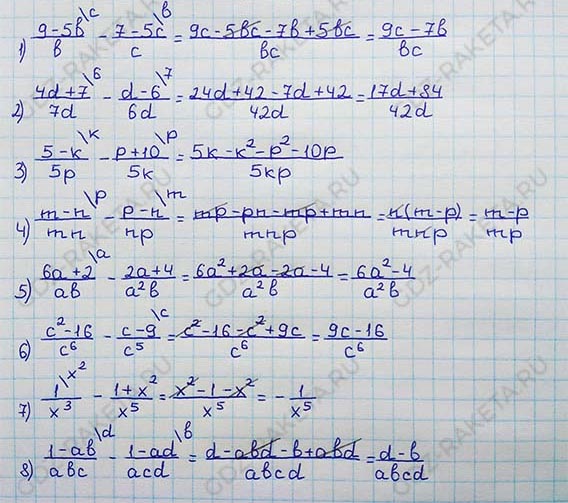 1) (9-5b)/b \c - (7-5c)/c \b = (9c-5bc-7b+5bc)/bc = (9c-7b)/bc
2) (4d+7)/7d \6 - (d-6)/6d \7 = (24d+42-7d+42)/42d = (17d+84)/42d
3) (5-k)/5p \k - (p+10)/5k \p = (5k-k²-p²-10p)/5kp
4) (m-n)/mn \p - (p-n)/np \m = (mp-pn-mp+mn)/mnp = n(m-p)/mnp = (m-p)/mp
5) (6a+2)/ab \a - (2a+4)/a²b = (6a²+2a-2a-4)/a²b = (6a²-4)/a²b
6) (c²-16)/c⁶ - (c-9)/c⁵ \c = (c²-16-c²+9c)/c⁶ = (9c-16)/c⁶
7) 1/x³ \x² - (1+x²)/x⁵ = (x²-1-x²)/x⁵ = -1/x⁵
8) (1-ab)/abc \d - (1-ad)/acd \b = (d-abd-b+abd)/abcd = (d-b)/abcd
GDZ-RAKETA.RU